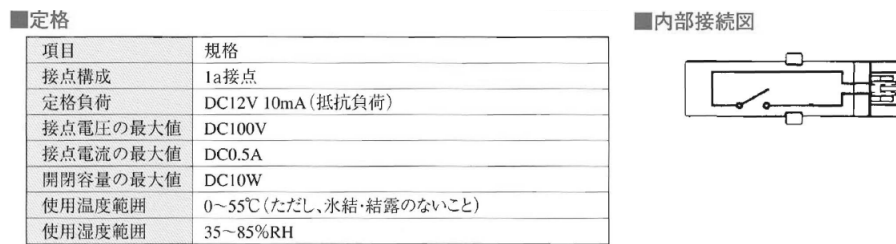 ■定格
項目 規格
接点構成 1a接点
定格負荷 DC12V 10mA(抵抗負荷)
接点電圧の最大値 DC100V
接点電流の最大値 DC0.5A
開閉容量の最大値 DC10W
使用温度範囲 0~55℃(ただし、氷結・結露のないこと)
使用湿度範囲 35~85%RH
■内部接続図